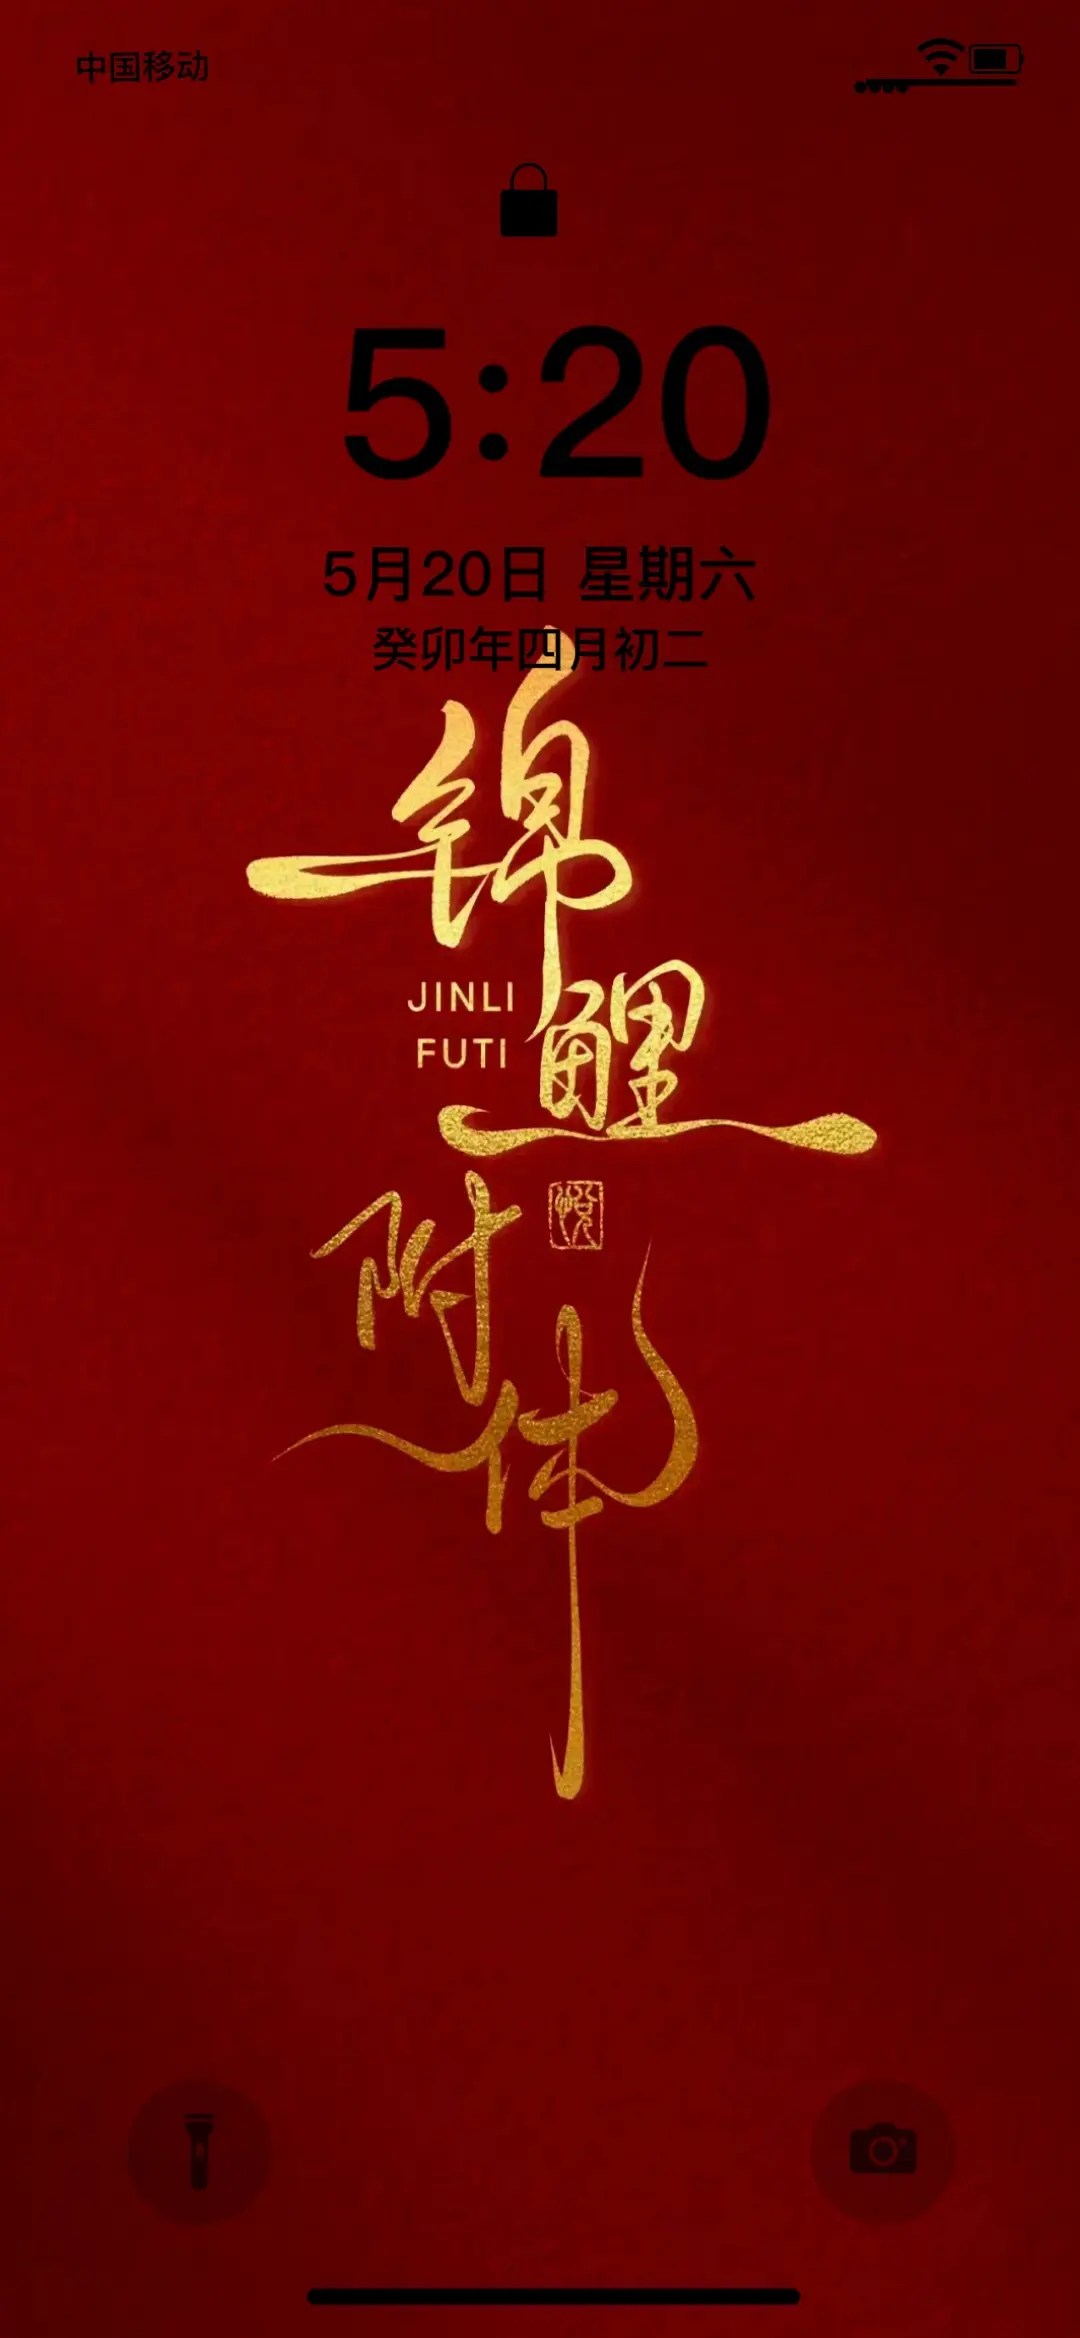 中国移动
5:20
5月20日 星期六
癸卯年四月初二
锦鲤
JINLI
FUTI
附体
悦